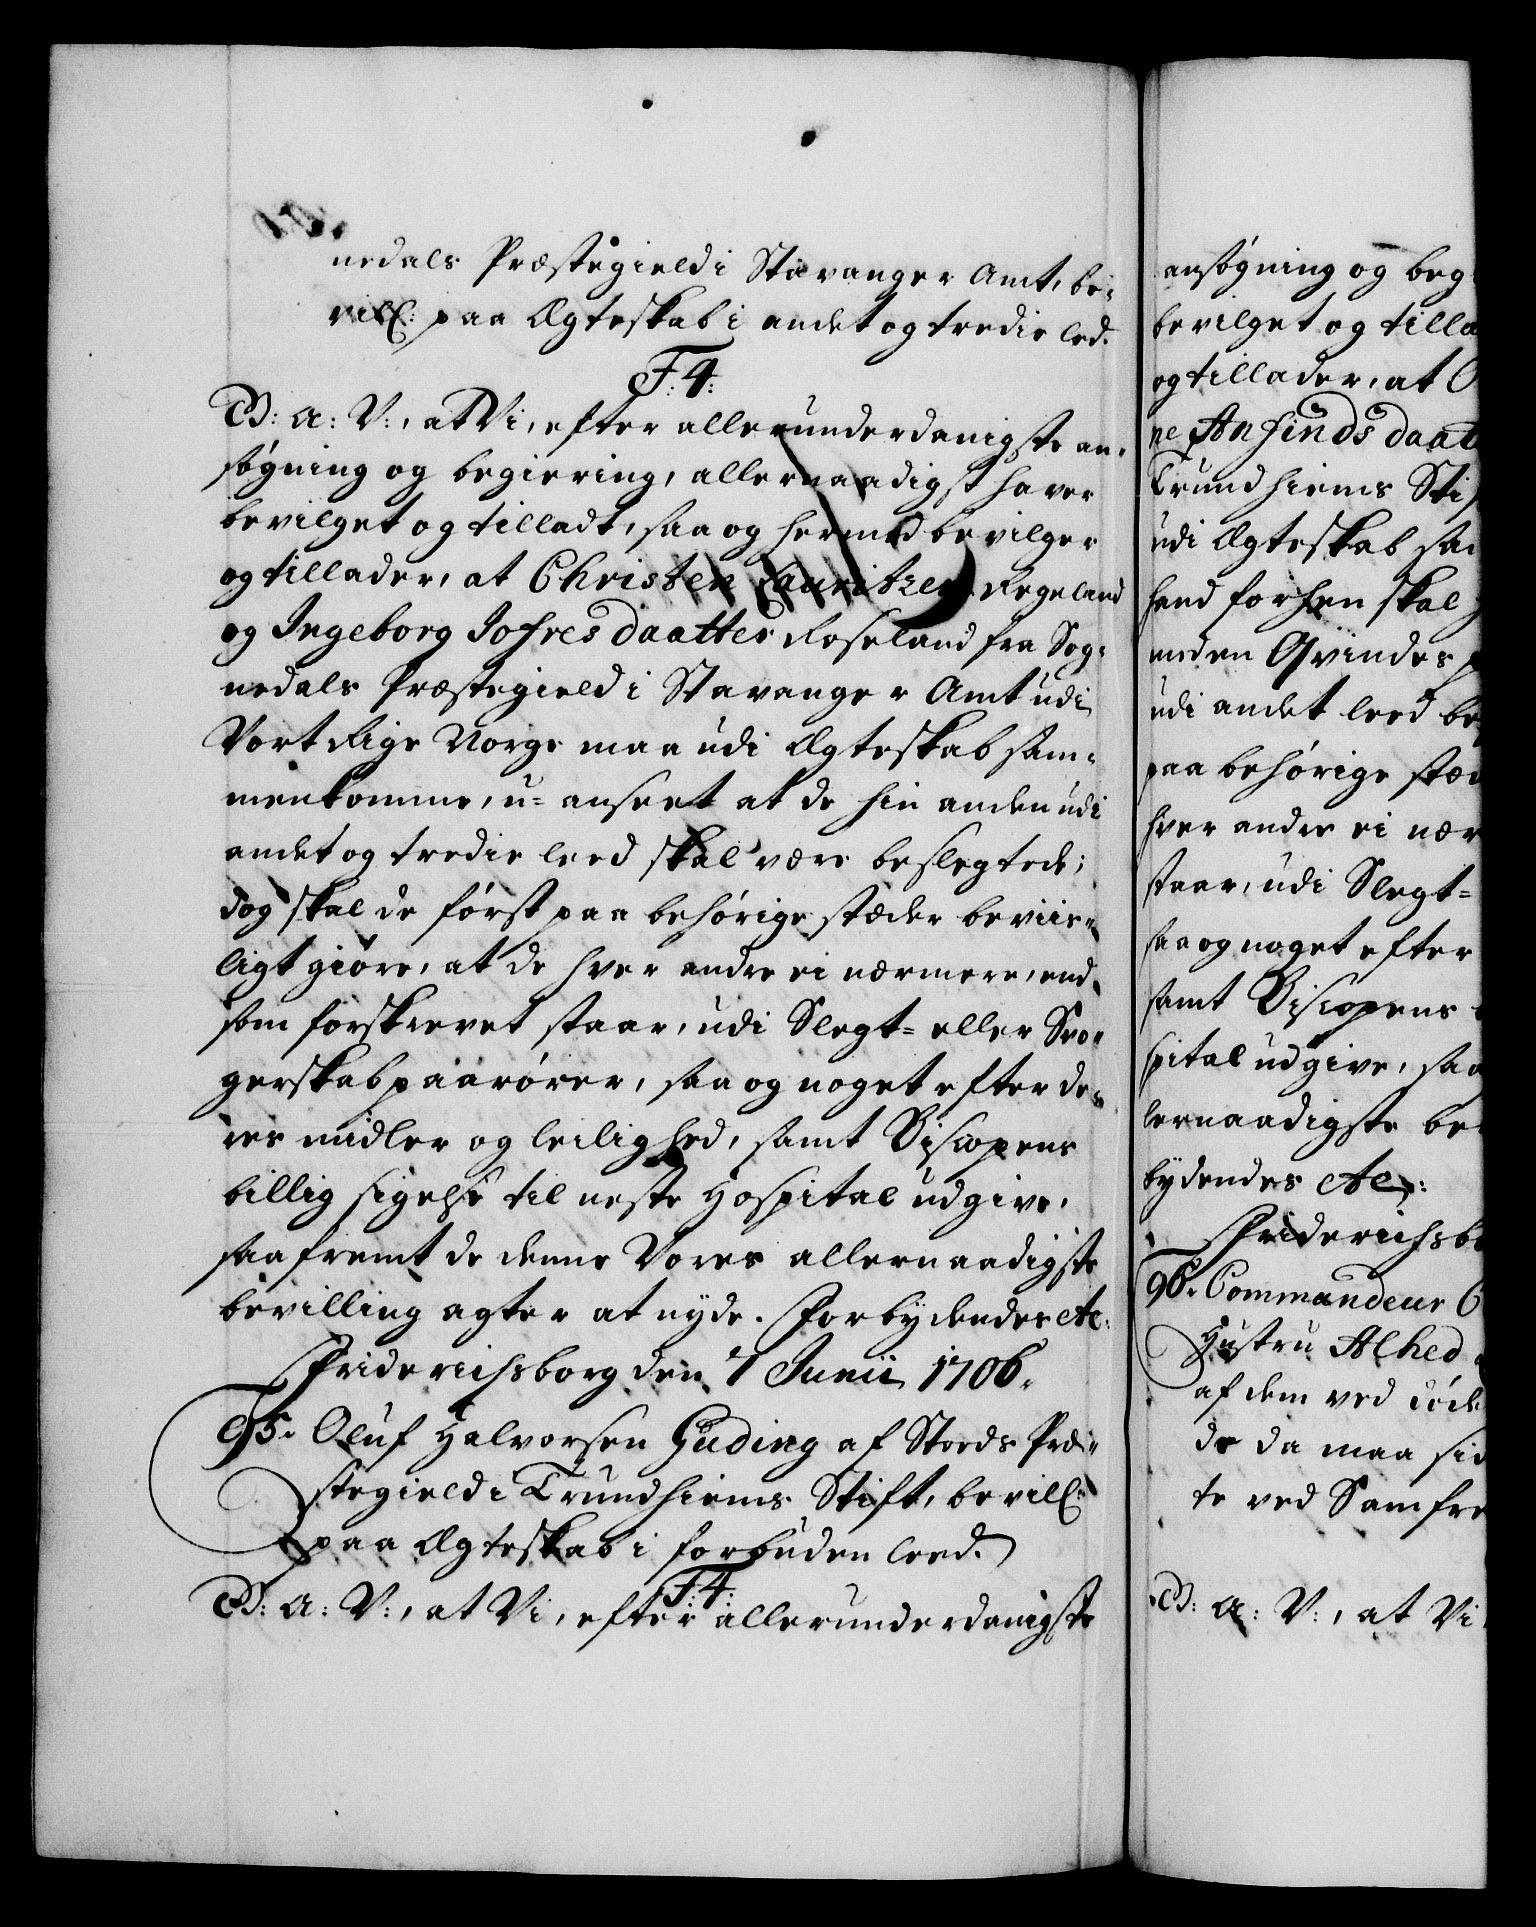 nedals Præstegield i Stavanger Amt, be-
vill: paa Ægteskab i andet og tredie led.
F: 4:
G: A: V:, at Vi, efter allerunderdanigste an-
søgning og begiering, allernaadigst haver
bevilget og tilladt, saa og hermed bevilger
og tillader, at Christen Lauritzen Regeland
og Ingeborg Jofres daatter Roseland fra Sog-
nedals Præstegield i Stavanger Amt udi
Vort Rige Norge maa udi Ægteskab sam-
menkomme, u-anseet at de hin anden udi
andet og tredie leed skal være beslegtede;
dog skal de først paa behørige stæder beviis-
ligt giøre, at de hver andre ei nærmere, end
som forskrevet staar, udi Slegt- eller Svo-
gerskab paarører, saa og noget efter de-
res midler og leilighed, samt Biscopens
billig sigelse til neste Hospital udgive,
saafremt de denne Vores allernaadigste
bevilling agter at nyde. Forbydendes etc:
Friderichsborg den 7 Junii 1706.
95. Oluf Halvorsen Guding af Stords Præ-
stegield i Trundhiems Stift, bevill:
paa Ægteskab i forbuden leed.
F: 4:
G: A: V:, at Vi, efter allerunderdanigste
ansøgning og beg
bevilget og tilla
og tillader, at O
ne Anfinds daat
Trundhiems Sti
udi Ægteskab sa
hand forhen skal
meden Qvindes
udi andet leed be
paa behørige stæd
hver andre ei nær
staar, udi Slegt-
saa og noget efter
samt Biscopens
spital udgive, saa
lernaadigste be
bydendes etc:
Friderichsbo
96. Commandeur C
Hustru Alhed
af dem ved døde
de da maa sid
te ved Samfre
G: A: V:, at Vi